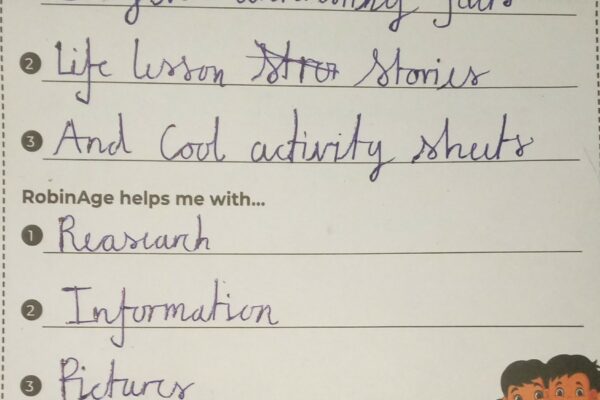 2 Life lesson stories
3 And Cool activity sheets
RobinAge helps me with...
1 Reasearch
2 Information
3 Pictures